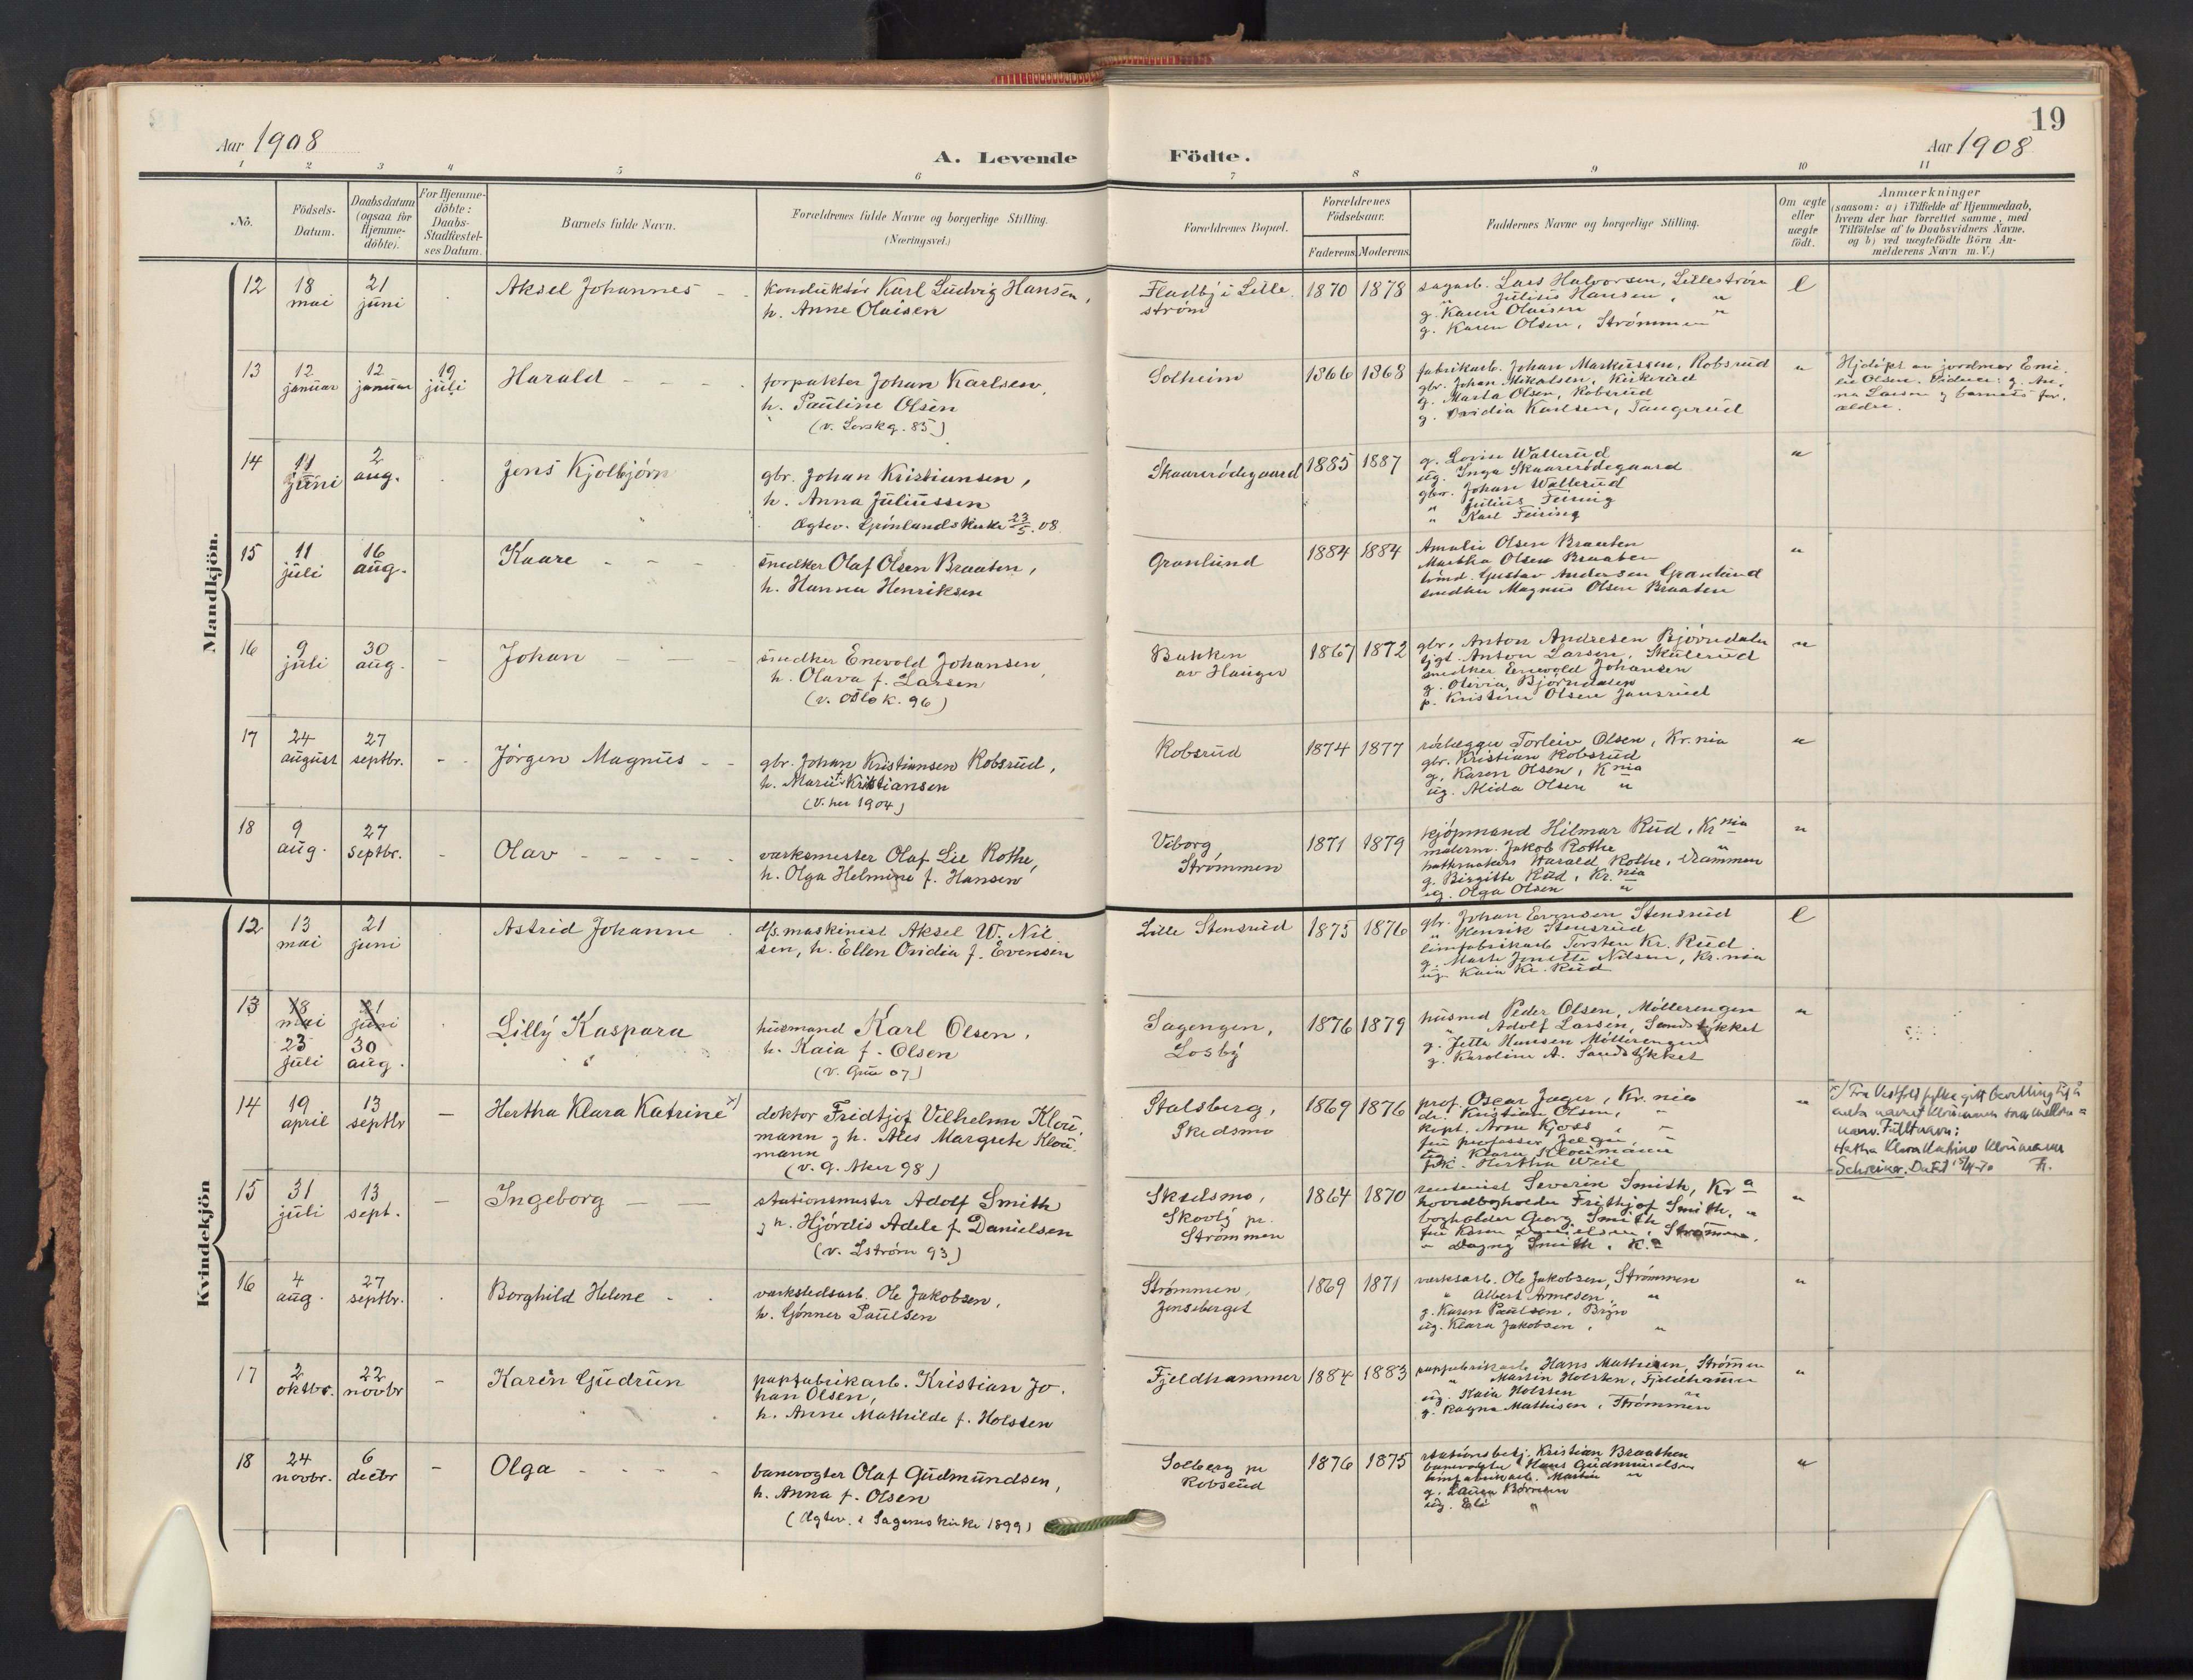 19
Aar 1908
A. Levende
Födte.
Aar 1908
1 2 3 4 5 6 7 8 9 10 11
No.
Födsels-
Datum.
Daabsdatum
(ogsaa for
Hjemme-
döbte).
For Hjemme-
döbte:
Daabs-
Stadfæstel-
ses Datum.
Barnets fulde Navn.
Forældrenes fulde Navne og borgerlige Stilling.
(Næringsvei.)
Forældrenes Bopæl.
Forældrenes
Födselsaar.
Faderens. Moderens.
Faddernes Navne og borgerlige Stilling.
Om ægte
eller
uægte
födt.
Anmærkninger
(saasom: a) i Tilfælde af Hjemmedaab,
hvem der har forrettet samme, med
Tilföielse af to Daabsvidners Navne.
og b) ved uægtefödte Börn An-
melderens Navn m. V.)
Mandkjön.
12
18
mai
21
juni
Aksel Johannes
konduktör Karl Ludvig Hansen,
h. Anne Olaisen
Fladby i Lille
ström
1870 1878
sagarb. Lars Halvorsen, Lilleström
" Julius Hansen, "
g. Karen Olaisen "
g. Karen Olsen, Strömmen
l
13
12
januar
12
januar
19
juli
Harald
forpakter Johan Karlsen,
h. Pauline Olsen
(v. Lørskg. 85)
Solheim
1866 1868
fabrikarb. Johan Markussen, Robsrud
gbr. Johan Mikalsen, Kirkerud
g. Marta Olsen, Robsrud
g. Ovidia Karlsen, Tangerud
"
Hjdöpt av jordmor Emi-
lie Olsen. Vidner: g. An-
na Larsen og barnets for-
ældre.
14
11
juni
2
aug.
Jens Kjolbjörn
gbr. Johan Kristiansen,
h. Anna Juliussen
Ægtev. Grönlands Kirke 23/5.08
Skaarerödegaard
1885 1887
g. Lovise Wallerud
ug. Inga Skaarerödegaard
gbr. Johan Wallerud
" Julius Feiring
" Karl Feiring
"
15
11
juli
16
aug.
Kaare
snedker Olaf Olsen Braaten,
h. Hanna Henriksen
Granlund
1884 1884
Amalie Olsen Braaten
Martha Olsen Braaten
Gustav Andersen Granlund
snedker Magnus Olsen Braaten
"
16
9
juli
30
aug.
Johan
snedker Enevold Johansen,
h. Olava f. Larsen
(v. Oslo k. 96)
Bakken
av Hauger
1867 1872
gbr. Anton Andresen Björndalen
Anton Larsen, Skulerud
snedker Enevold Johansen
g. Olivia Björndalen
p. Kristine Olsen Jansrud
"
17
24
august
27
septbr.
Jörgen Magnus
gbr. Johan Kristiansen Robsrud,
h. Marie Kristiansen
(v. her 1904)
Robsrud
1874 1877
rörlægger Torleiv Olsen, Kr.nia
gbr. Kristian Robsrud
g. Karen Olsen, Knia
ug. Alida Olsen "
"
18
9
aug.
27
septbr.
Olav
verksmester Olaf Lie Rothe,
h. Olga Helmine f. Hansen
Viborg,
Strömmen
1871 1879
kjöpmand Hilmar Rud, Kr.nia
malerm. Jakob Rothe "
Harald Rothe, Drammen
g. Birgitte Rud, Kr.nia
ug. Olga Olsen "
"
Kvindekjön
12
13
mai
21
juni
Astrid Johanne
d/s. maskinist Aksel W. Nil
sen, h. Ellen Ovidia f. Evensen
Lille Stensrud
1875 1876
gbr. Johan Evensen Stensrud
" Henrik Stensrud
limfabrikarb Torsten Kr. Rud
g. Marte Jonette Nilsen, Kr.nia
ug. Kaia Kr. Rud
l
13
18
mai
21
juni
23
juli
30
aug.
Lilly Kaspara
husmand Karl Olsen,
h. Kaia f. Olsen
(v. Grue 07)
Sagengen,
Losby
1876 1879
husmd Peder Olsen, Möllerengen
" Adolf Larsen, Sandstykket
g. Jetta Hansen Möllerengen
g. Karoline A. Sandstykket
"
14
19
april
13
septbr
Hertha Klara Katrine x)
doktor Fridtjof Vilhelm Klou-
mann og h. Ales Margrete Klou-
mann
(v. g. Aker 98)
Stalsberg,
Skedsmo
1869 1876
prof. Oscar Jager, Kr.nia
dr. Kristian Olsen, "
kapt. Arne Kjoss, "
fru professor Jæger, "
ug. Klara Kloumann "
frk. Hertha Weil
"
x) Fra Vestfold fylke gitt bevilling til å
anta navnet Kloumann som mellom=
navn. Fullt navn:
Hertha Klara Katrine Kloumann
Schreiner. Datert 15/4-70
15
31
juli
13
sept.
Ingeborg
stationsmester Adolf Smith
og h. Hjördis Adele f. Danielsen
(v. Lström 93)
Skedsmo,
Skovly pr.
Strömmen
1864 1870
Severin Smith, Kr.a
hovedbogholder Frithjof Smith, "
bogholder Georg Smith
fru Karen Danielsen, Strömmen,
" Dagny Smith, K.a
"
16
4
aug.
27
septbr.
Borghild Helene
verkstedsarb. Ole Jakobsen,
h. Gjönner Paulsen
Strömmen,
Jensberget
1869 1871
verksarb. Ole Jakobsen, Strömmen
" Albert Arnesen, "
g. Karen Paulsen, Bryn
ug. Klara Jakobsen, "
"
17
2
oktbr.
22
novbr
Karen Gudrun
papfabrikarb. Kristian Jo-
han Olsen,
h. Anne Mathilde f. Holsten
Fjeldhammer
1884 1883
papfabrikarb Hans Mathisen, Strömmen
" Martin Holsten, Fjeldhammer
ug. Kaia Holsten "
g. Ragna Mathisen, Strömmen
"
18
24
novbr.
6
decbr
Olga
banevogter Olaf Gudmundsen,
h. Anna f. Olsen
(Ægtev. i Sagenes kirke 1899)
Solberg pr
Robsrud
1876 1875
stationsbetj. Kristian Braathen
banevogter Hans Gudmundsen
limfabrikarb. Martin "
g. Laura
ug. "
"